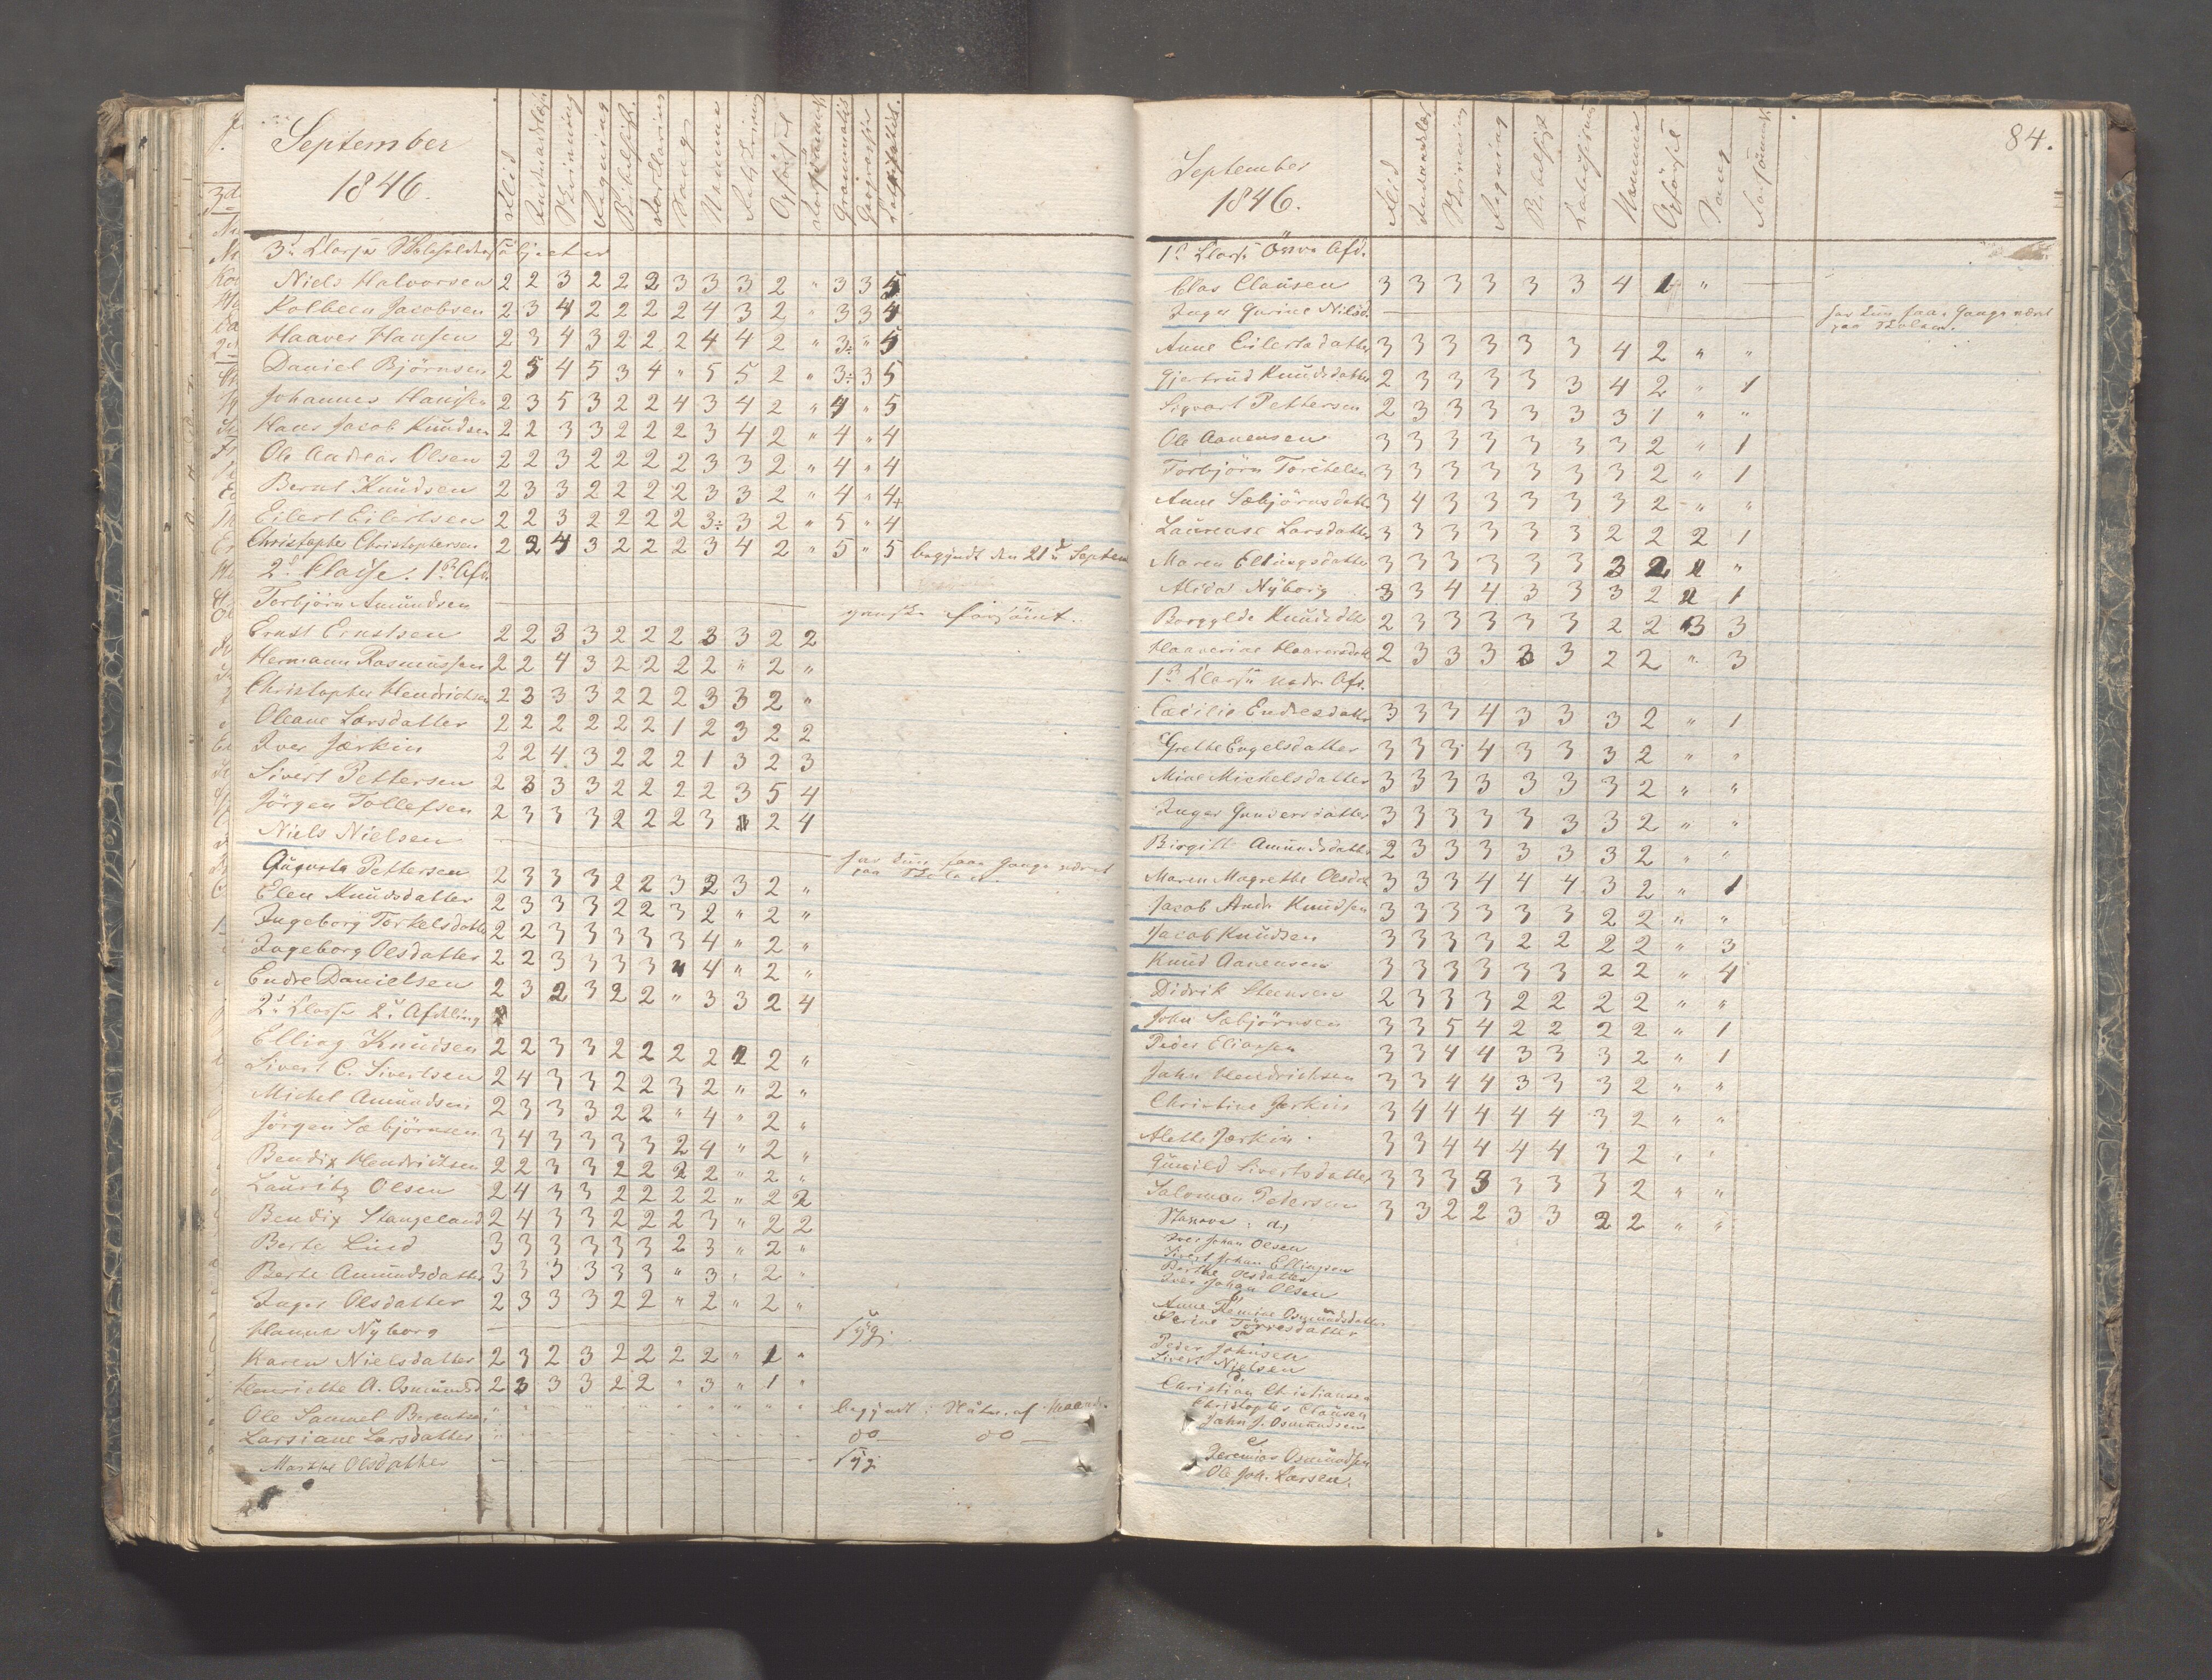 September
1846.
Flid
Skrivning
Regning
Sang
Opførsel
Geografie
Niels Halvorsen 2 2 3 2 2 2 3 3 3 2 " 3 3 5
Kolbein Jacobsen 2 3 4 2 2 2 2 4 3 2 " 3 3 4
Haaver Hansen 2 3 4 3 2 2 2 4 4 2 " 3÷ " 5
Daniel Björnsen 2 5 4 5 3 4 " 5 5 2 " 3÷ 3 5
Johannes Hansen 2 3 5 3 2 2 4 3 4 2 " 4 " 5
Hans Jacob Knudsen 2 2 3 3 2 2 2 3 4 2 " 4 " 4
Ole Andreas Olsen 2 2 3 2 2 2 2 3 3 2 " 4 " 4
Bernt Knudsen 2 3 3 2 2 2 2 3 3 2 " 4 " 4+
Eilert Eilertsen 2 2 3 2 2 2 2 3÷ 3 2 " 5 " 4
Christopher Christophersen 2 2 4 3 2 2 2 3 4 2 " 5 " 5 begyndt den 21d Septem
2d Classe. 1ste Afd.
Torbjörn Amundsen ganske forsömt.
Ernst Ernstsen 2 2 3 3 2 2 2 3 3 2 2
Hermann Rasmussen 2 2 4 3 2 2 2 2 " 2 "
Christopher Hendrichsen 2 3 3 3 2 2 2 3 3 2 "
Oleane Larsdatter 2 2 2 2 2 2 1 2 3 2 2
Iver Jærkin 2 2 4 3 2 2 2 1 3 2 3
Sivert Pettersen 2 3 3 3 2 2 2 2 3 5 4
Jörgen Tollefsen 2 3 3 3 2 2 2 3 1 2 4
Niels Nielsen har kun faae Gange været paa Skolen.
Augusta Pettersen 2 3 3 3 2 2 3 2 3 2 "
Elen Knudsdatter 2 3 3 3 2 2 3 2 " 2 "
Ingeborg Torkelsdatter 2 2 3 3 3 3 3 4 " 2 "
Ingeborg Olsdatter 2 2 3 3 3 3 4 4 " 2 "
Endre Danielsen 2 3 2 3 2 2 " 3 3 2 4
2d Klasse 2d Afdeling
Elling Knudsen 2 2 3 3 2 2 2 2 2 2 "
Sivert C. Sivertsen 2 4 3 3 2 2 3 2 " 2 "
Michel Amundsen 2 3 3 3 2 2 " 4 " 2 "
Jörgen Sæbjörnsen 3 4 3 3 3 3 2 4 " 2 "
Bendix Hendrichsen 2 2 3 3 2 2 2 2 " 2 "
Lauritz Olsen 2 4 3 3 2 2 2 2 " 2 2
Bendix Stangeland 2 4 3 3 2 2 2 3 " 2 2
Berte Lind 3 3 3 3 3 3 2 3 " 2 "
Berte Amundsdatter 3 3 3 3 3 3 " 3 " 2 "
Inger Olsdatter 2 3 3 3 2 2 " 2 " 2 "
Hanna Nyborg Syg.
Karen Nielsdatter 2 3 2 3 2 2 2 2 " 1 "
Henriette A. Osmundsd 2 3 3 3 2 2 " 3 " 1 "
Ole Samuel Berentsen begyndt i Slutn. af Maaneden
Larsiane Larsdatter do do
Marthe Olsdatter Syg
84.
September
1846.
Flid
Skrivning
Regning
Opförsel
Sang
1ste Klasse Övre Afd.
Clas Clausen 3 3 3 3 3 3 3 4 1 "
Inger Gurine Nilsd. har kun faae Gange været paa Skolen.
Anne Eilertsdatter 3 3 3 3 3 3 4 2 " "
Gjertrud Knudsdatter 2 3 3 3 3 3 4 2 " 1
Sigvart Pettersen 2 3 3 3 3 3 3 1 " "
Ole Aanensen 3 3 3 3 3 3 3 2 " 1
Torbjörn Torchelsen 3 3 3 3 3 3 3 2 " 1
Anne Sæbjörnsdatter 3 4 3 3 3 3 3 2 " "
Laurense Larsdatter 3 3 3 3 3 3 2 2 2 1
Maren Ellingsdatter 3 3 3 3 3 3 3 2 2 "
Alida Nyborg 3 3 4 4 3 3 3 2 2 1
Borgylde Knudsdtr 2 3 3 3 3 3 2 2 3 3
Haaverine Haaversdtr 2 3 3 3 3 3 2 2 " 3
1ste Klasse nedr. Afd.
Cæcilie Endresdatter 3 3 3 4 3 3 3 2 " 1
Grethe Engelsdatter 3 3 3 4 3 3 3 2 " "
Mine Michelsdatter 3 3 3 3 3 3 3 2 " "
Inger Gundersdatter 3 3 3 3 3 3 3 2 " "
Birgitte Amundsdatter 2 3 3 3 3 3 3 2 " "
Maren Magrethe Olsdtr 3 3 3 4 4 4 3 2 " 1
Jacob Andr. Knudsen 3 3 3 3 3 3 2 2 " "
Jacob Knudsen 3 3 3 3 2 2 2 2 " 3
Knud Aanensen 3 3 3 3 3 3 2 2 " 4
Didrik Steensen 2 3 3 3 2 2 2 2 " "
John Sæbjörnsen 3 3 5 4 2 2 2 2 " 1
Peder Eliassen 3 3 4 4 3 3 3 2 " 1
Jahn Hendrichsen 3 3 4 4 3 3 3 2 " "
Christine Jerkin 3 4 4 4 4 4 3 2 " "
Alette Jærkin 3 3 4 4 4 4 3 2 " "
Gunild Sivertsdatter 3 3 3 3 3 3 3 2 " "
Salomon Pedersen 3 3 2 2 3 3 2 2 " "
Iver Johan Olsen
Sivert Johan Ellingsen
Berthe Olsdatter
Iver Johan Olsen
Anne Osmundsdatter
Serine Törresdatter
Peder Johnsen
Sivert Nielsen
Christian Christiansen
Christopher Clausen
Jahn J. Osmundsen
e
Jeremias Osmundsen
Ole Joh. Larsen.